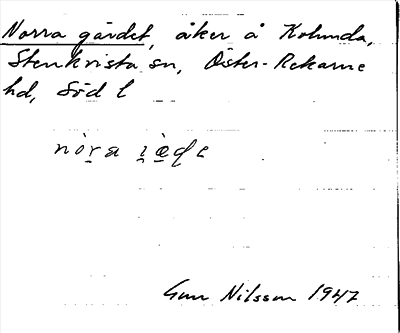 Norra gärdet, åker å Kolunda,
Stenkvista sn, Öster-Rekarne
hd, Söd l
nòra
Gun Nilsson 1947